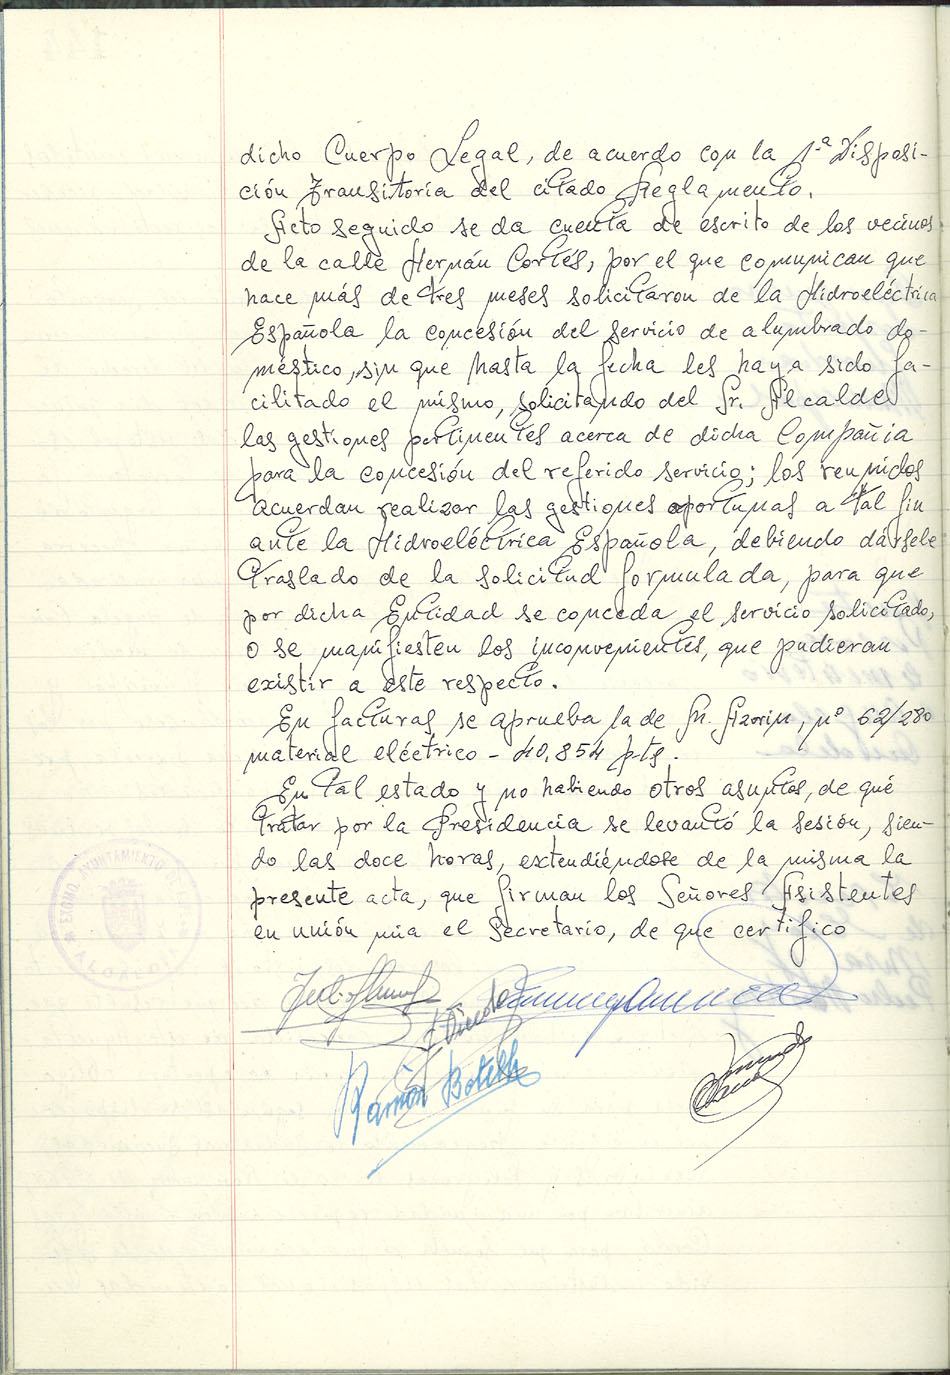 dicho Cuerpo Legal, de acuerdo con la 1ª Disposi-
ción Transitoria del citado Reglamento.
Acto seguido se da cuenta de escrito de los vecinos
de la calle Hernán Cortés, por el que comunican que
hace más de tres meses solicitaron de la Hidroeléctrica
Española la concesión del servicio de alumbrado do-
méstico, sin que hasta la fecha les haya sido fa-
cilitado el mismo, solicitando del Sr. Alcalde
las gestiones pertinentes acerca de dicha Compañía
para la concesión del referido servicio; los reunidos
acuerdan realizar las gestiones oportunas a tal fin
ante la Hidroeléctrica Española, debiendo dársele
traslado de la solicitud formulada, para que
por dicha Entidad se conceda el servicio solicitado,
o se manifiesten los inconvenientes, que pudieran
existir a este respecto.
En facturas, se aprueba la de Sr. Azorin, nº 62/280
material eléctrico - 40,854 pts.
En tal estado y no habiendo otros asuntos, de qué
tratar por la Presidencia se levantó la sesión, sien-
do las doce horas, extendiéndose de la misma la
presente acta, que firman los Señores Asistentes
en unión mia el Secretario, de que certifico
Ramón Botella
EXCMO. AYUNTAMIENTO DE